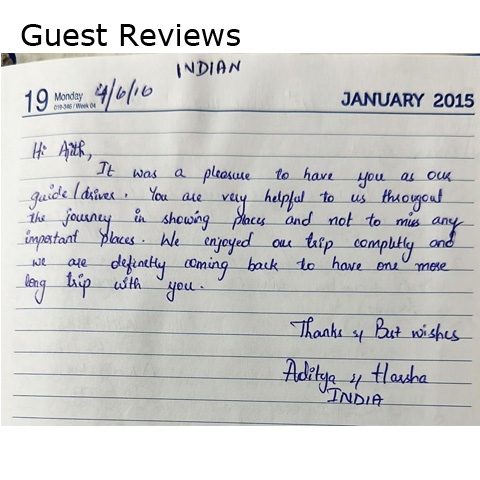 Guest Reviews
INDIAN
19 Monday 4/6/16 JANUARY 2015
019-346 / Week 04
Hi Ajith,
It was a pleasure to have you as our
guide/driver. You are very helpful to us througout
the journey in showing places and not to miss any
important places. We enjoyed our trip completly and
we are definetly coming back to have one more
long trip with you.
Thanks & Best wishes
Aditya & Harsha
INDIA